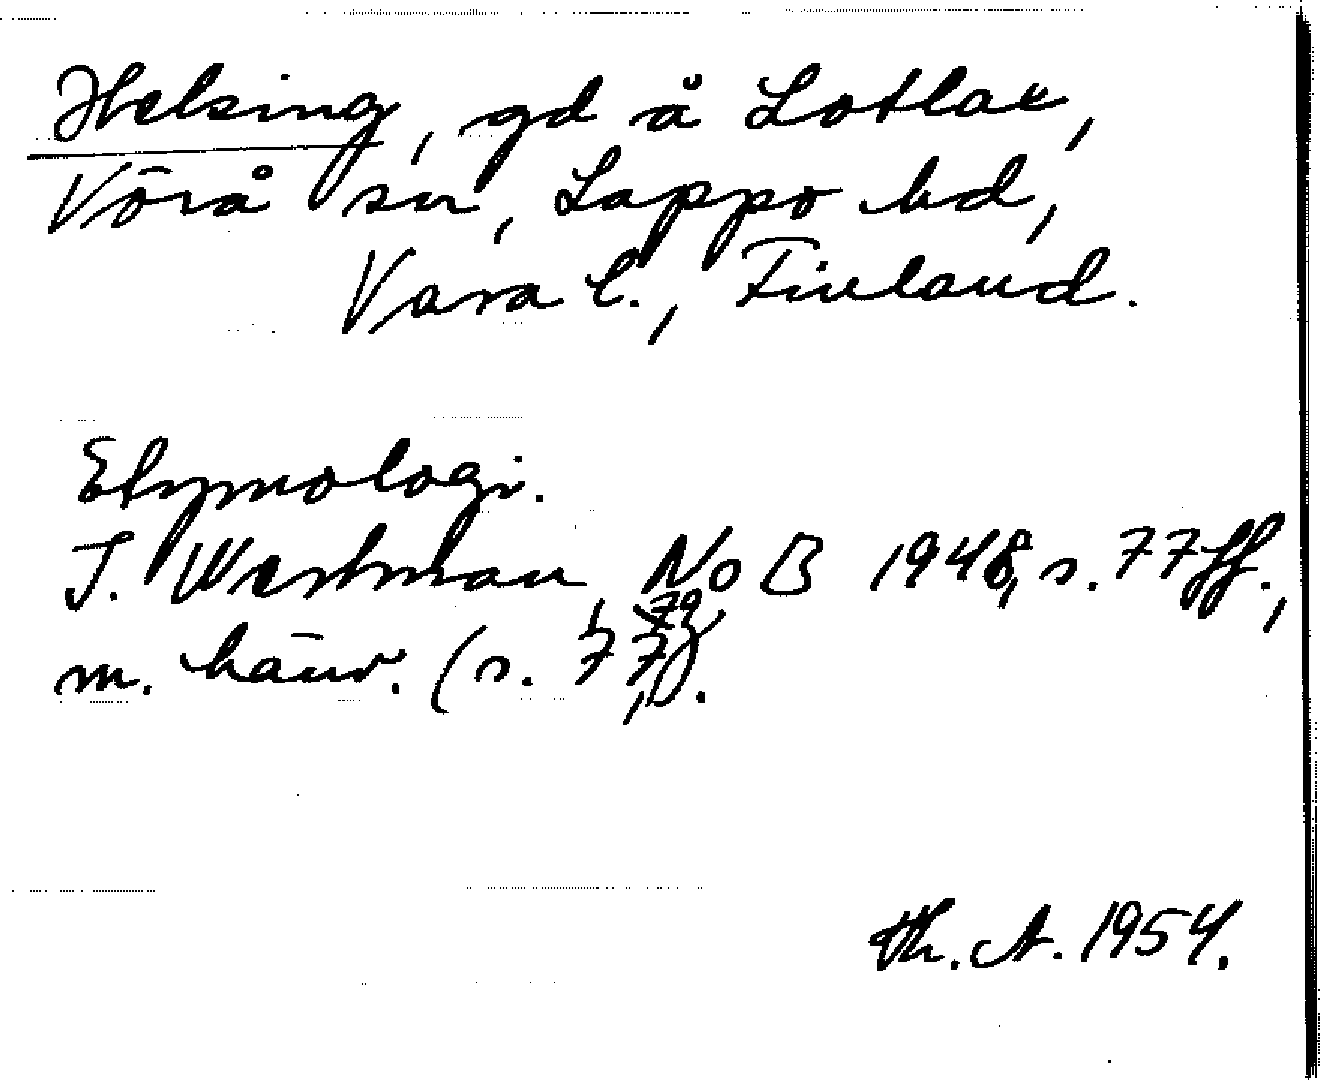 Helsing, gd å Lotlax,
Vörå sn, Lappo hd,
Vasa l., Finland.
Etymologi.
I. Westman, NoB 1948, s. 77 ff.,
m. hänv. (s. 77, 79).
Th. A. 1954.